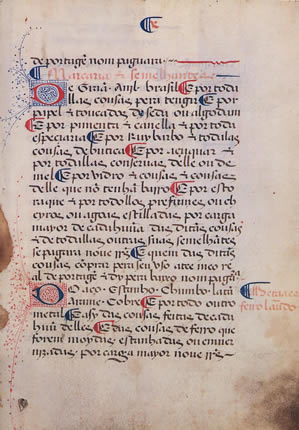 de portagẽ nom paguara
Marcaria ⁊ semelhantes
De Grãa Anil brasil E por toda
dallas cousas pera tengir E por
papel ⁊ toucados de seda ou algodam
E por pimenta ⁊ canella ⁊ por toda
especiaria E por Ruybarbo ⁊ todallas
cousas de botica E por açuquar ⁊
por todallas conseruas delle ou de
mel E por vidro ⁊ cousas ⁊ cousas
delle que nõ tenha barro E por esto
raque ⁊ por todollos prefumes ou ch
eyros ou agoas estilladas por carga
mayor de cada huũa das ditas cousas
⁊ de todallas outras suas semelhantes
se pagara noue rrs E quem das ditas
cousas cõprar pera seu vso ate meo rr
al de portagẽ ⁊ dy pera baixo nom pagua
Do aço Estanho Chumbo latã
Arame Cobre E por todo outro
metal E assy das cousas feitas de cada
huũ delles E das cousas de ferro que
forem moydas estanhadas ou enuer
nizadas por carga mayor noue rrs
Metaaes
ferro laurado